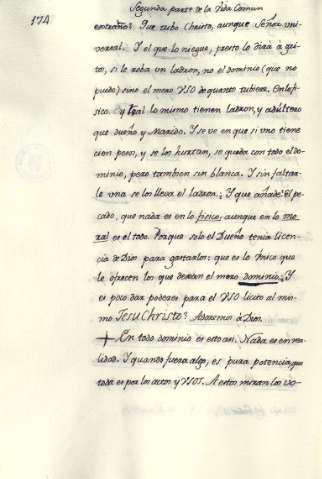 174
Segunda parte de la Vida Comun
entraños? Que tubo Christo, aunque Señor uni-
versal. Y el que lo niegue, presto lo dirá à gri-
tos, si le roba un ladron, no el dominio (que no
pudo) sino el mero VSO de quanto tubiere. En lo fi-
sico. y Real lo mismo tienen ladron, y adultero
que dueño y Marido. Y se ve en que si uno tiene
cien pesos, y se los hurtan, se queda con todo el do-
minio, pero tambien sin blanca. Y sin faltar-
le una se los lleva el ladron. ¿Y que añade? El pe-
cado, que nada es en lo fisico, aunque en lo mo-
ral es el todo. Porque solo el Dueño tenia licen-
cia de Dios para gastarlos: que es lo Vnico que
le ofrecen los que dexan el mero dominio. ¿Y
es poco dar poderes para el VSO licito al mis-
mo JesuChristo?
de Dios.
+ En todo dominio es esto asi. Nada es en rea-
lidad. Y quando fuera algo, es pura potencia, que
toda es por los actos y VSOS. A estos miran los Vo-